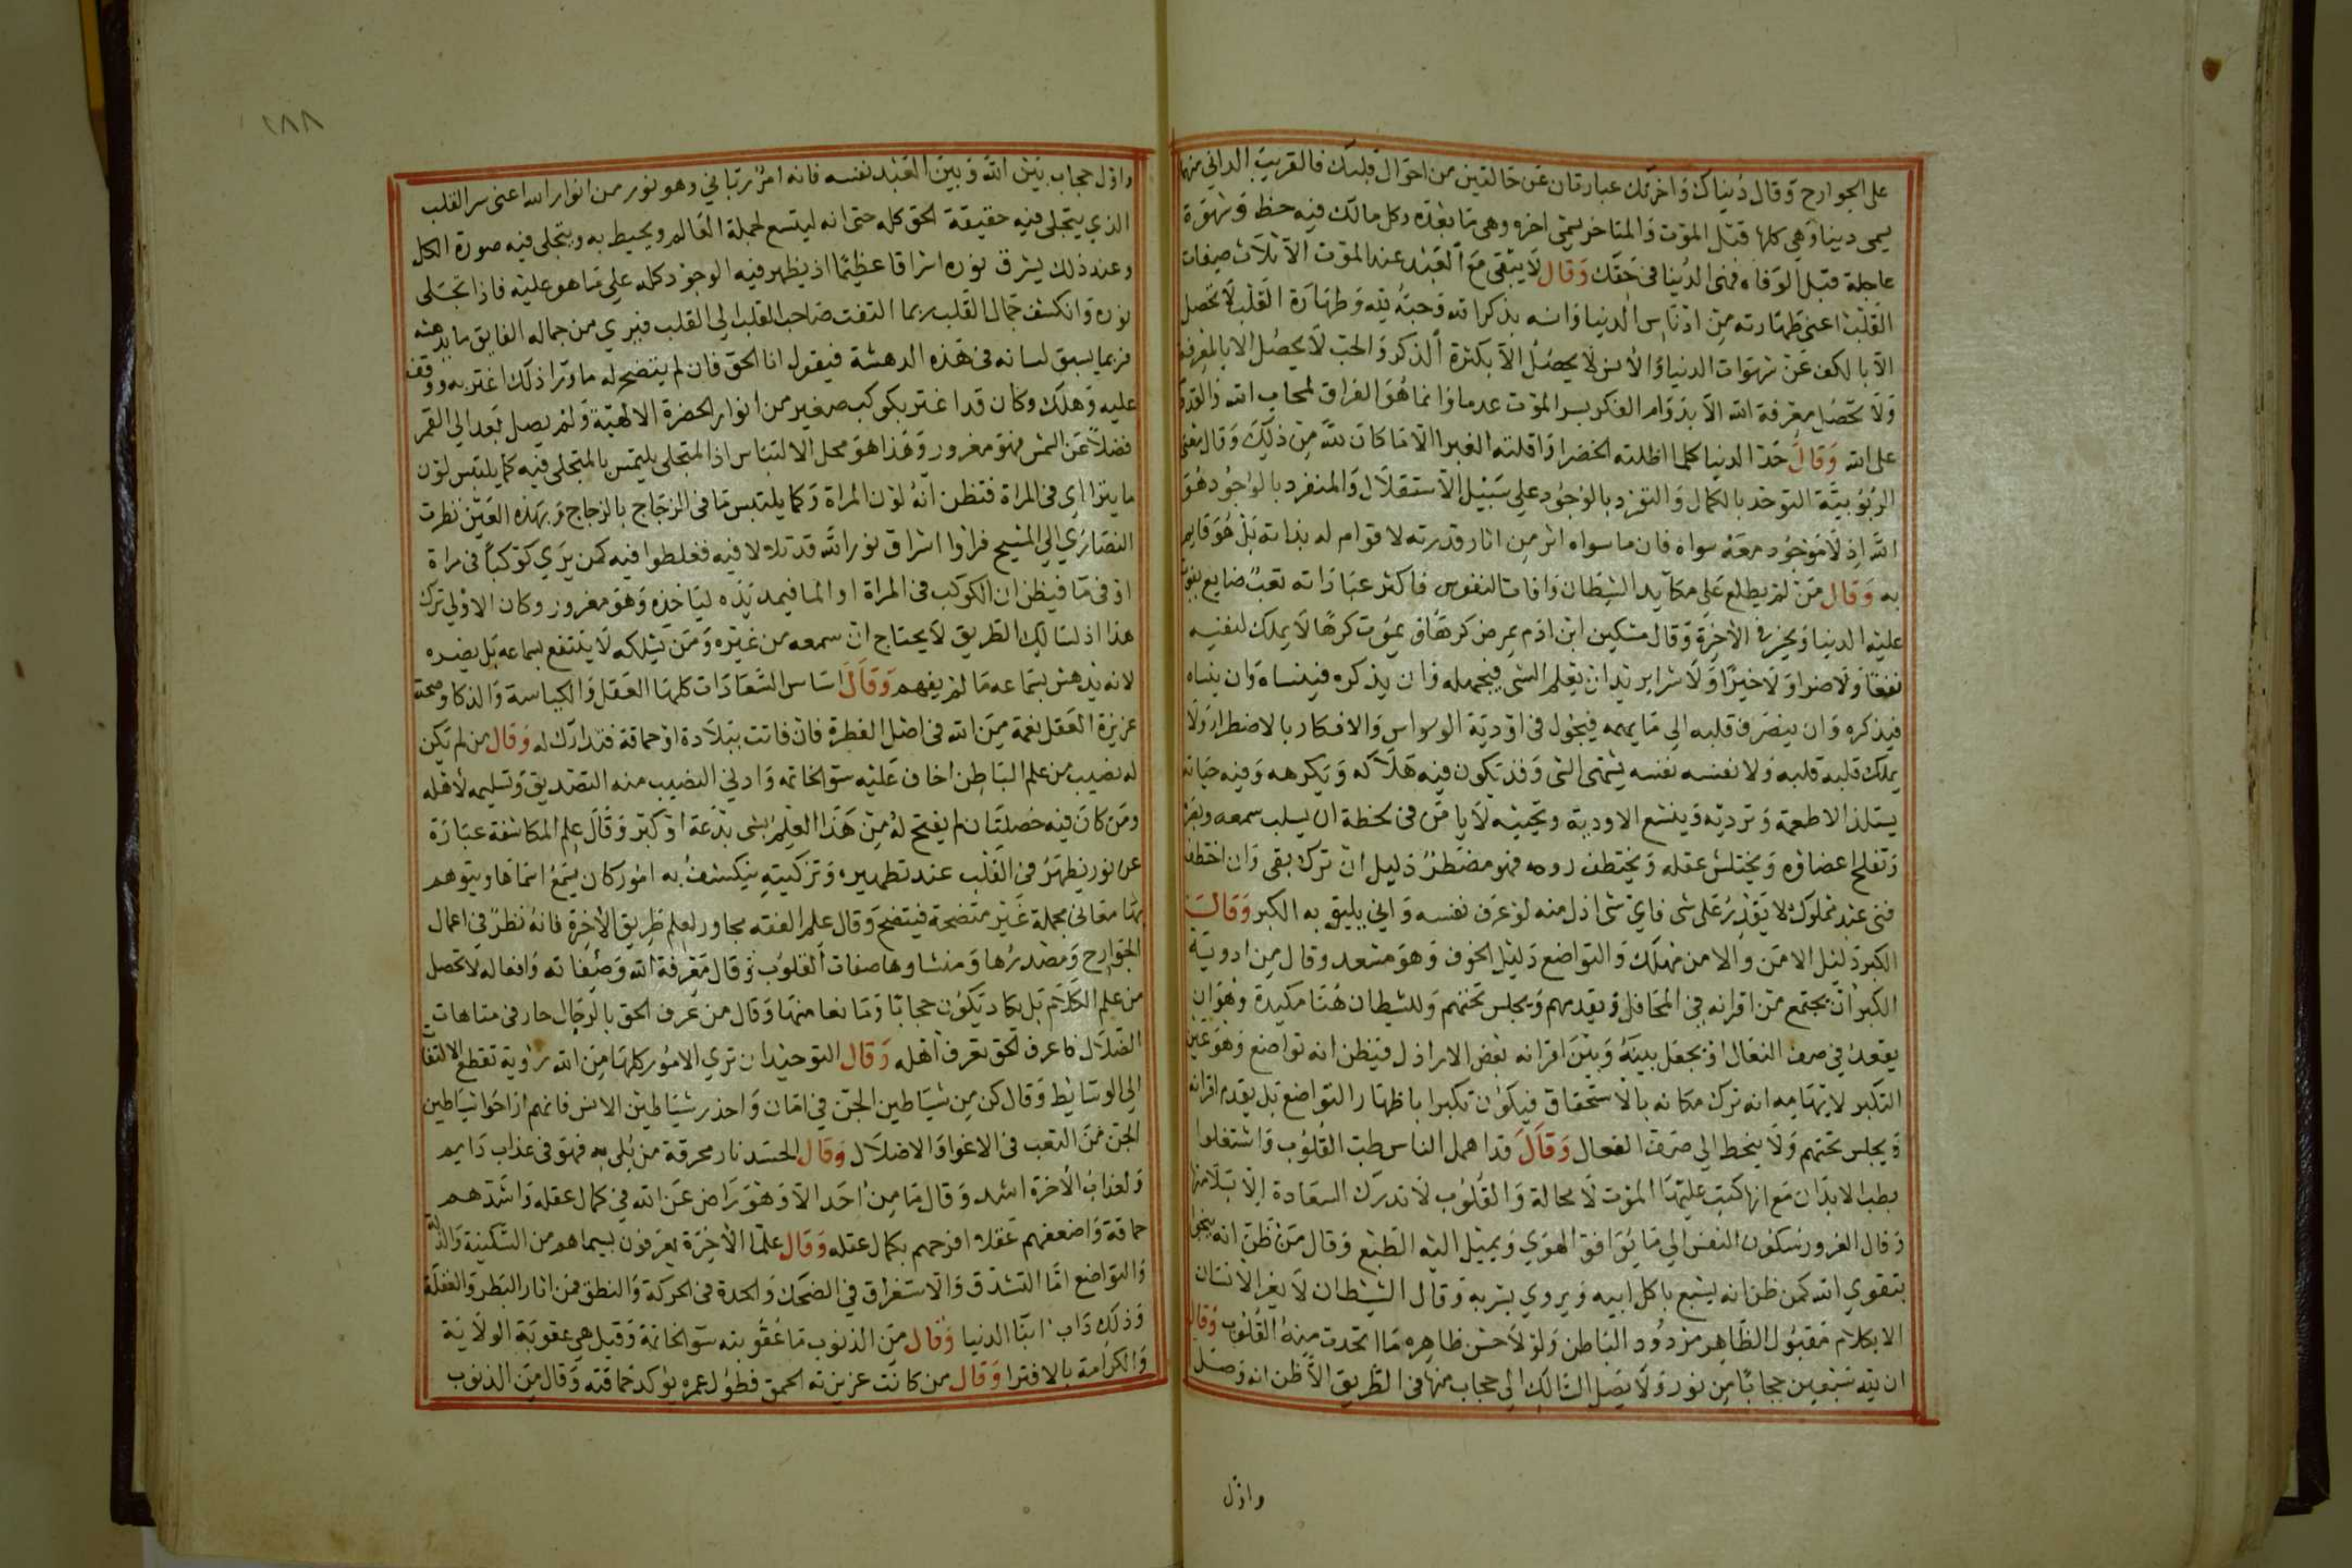 على الجوارح وقال دنياك واخرتك عبارتان عن حالتين من احوال قلبك فالقريب الداني منها
يسمى دينا وهي كلها قبل الموت والمتاخر يسمى اخره وهي ما بعده وكل مالك فيه حظ وشهوة
عاجلة قبل الوفاه فهى الدنيا في حقك وقال لا يبقى مع العبد عند الموت الا ثلاث صفات
القلب اعنى طهارته من ادناس الدنيا وانسه بذكر الله وحبه لله وطهارة القلب لا تحصل
الا بالكف عن شهوات الدنيا والانس لا يحصل الا بكثرة الذكر والحب لا يحصل الا بالمعرفة
ولا تحصل معرفة الله الا بدوام الفكر ليس الموت عدما وانما هو الفراق لمحاب الله والقدوم
على الله وقال حد الدنيا كلما اظلته الخضرا واقلته الغبرا الا ما كان لله من ذلك وقال معنى
الربوبية التوحد بالكمال والتفرد بالوجود على سبيل الاستقلال والمنفرد بالوجود هو
الله اذ لا موجود معه سواه فان ما سواه اثر من اثار قدرته لا قوام له بذاته بل هو قايم
به وقال من لم يطلع على مكايد الشيطان وافات النفوس فاكثر عباداته تعب ضايع يفوت
عليه الدنيا ويخسر في الاخرة وقال مسكين ابن ادم يمرض كرها ويموت كرها لا يملك لنفسه
نفعا ولا ضرا ولا خيرا ولا شرا يريد ان يعلم الشى فيجهله وان يذكره فينساه وان ينساه
فيذكره وان يصرف قلبه الى ما يهمه فيجول في اودية الوسواس والافكار بالاضطرار ولا
يملك قلبه قلبه ولا نفسه نفسه يشتهى الشى وقد يكون فيه هلاكه ويكره وفيه حياته
يستلذ الاطعمة وترديه ويستبشع الادوية وتحييه لا يامن في لحظة ان يسلب سمعه وبصره
وتفلج اعضاوه ويختلس عقله ويختطف روحه فهو مضطر ذليل ان ترك بقى وان اختطف
فنى عبد مملوك لا يقدر على شى فاى شى اذل منه لو عرف نفسه وانى يليق به الكبر وقال
الكبر دليل الامن والامن مهلك والتواضع دليل الخوف وهو مسعد وقال من ادوية
الكبر ان يجتمع مع اقرانه في المحافل ويقدمهم ويجلس تحتهم وللشيطان هنا مكيدة وهو ان
يقعد في صف النعال او يجعل بينه وبين اقرانه بعض الاراذل فيظن انه تواضع وهو عين
التكبر لايهامه انه ترك مكانه بالاستحقاق فيكون تكبرا باظهار التواضع بل يقدم اقرانه
ويجلس تحتهم ولا ينحط الى صف النعال وقال قد اهمل الناس طب القلوب واشتغلوا
بطب الابدان مع انها كتب عليها الموت لا محالة والقلوب لا تدرك السعادة الا بسلامتها
وقال الغرور سكون النفس الى ما يوافق الهوى ويميل اليه الطبع وقال من ظن انه ينجوا
بتقوى ابيه كمن ظن انه يشبع باكل ابيه ويروي بشربه وقال الشيطان لا يغر الانسان
الا بكلام مقبول الظاهر مردود الباطن ولولا حسن ظاهره ما انخدعت منه القلوب وقال
ان لله سبعين حجابا من نور ولا يصل السالك الى حجاب منها في الطريق الا ظن انه وصل
واول
١٨٨
واول حجاب بين الله وبين العبد نفسه فانه امر رباني وهو نور من انوار الله اعنى سر القلب
الذي يتجلى فيه حقيقة الحق كله حتى انه ليتسع لجملة العالم ويحيط به ويتجلى فيه صورة الكل
وعند ذلك يشرق نوره اشراقا عظيما اذ يظهر فيه الوجود كله على ما هو عليه فاذا تجلى
نوره وانكشف جمال القلب ربما التفت صاحب القلب الى القلب فيرى من جماله الفايق ما يدهشه
فربما يسبق لسانه في هذه الدهشة فيقول انا الحق فان لم يتضح له ما ورا ذلك اغتر به ووقف
عليه وهلك وكان قد اغتر بكوكب صغير من انوار الحضرة الالهية ولم يصل بعد الى القمر
فضلا عن الشمس فهو مغرور وهذا هو محل الالتباس اذ المتجلى يلتبس بالمتجلى فيه كما يلتبس لون
ما يتراى في المراة فتظن انه لون المراة وكما يلتبس ما في الزجاج بالزجاج وبهذه العين نظرت
النصارى الى المسيح فراوا اشراق نور الله قد تلالا فيه فغلطوا فيه كمن يرى كوكبا في مراة
او في ما فيظن ان الكوكب في المراة او الما فيمد يده لياخذه وهو مغرور وكان الاولى ترك
هذا اذ السالك الطريق لا يحتاج ان سمعه من غيره ومن يسلكه لا ينتفع بسماعه بل يضره
لانه يدهش بسماعه ما لم يفهم وقال اساس السعادات كلها العقل والكياسة والذكا وصحة
غريزة العقل نعمة من الله في اصل الفطرة فان فاتت ببلادة او حماقة فتدارك له وقال من لم تكن
له نصيب من علم الباطن اخاف عليه سو الخاتمه وادنى النصيب منه التصديق وتسليمه لاهله
ومن كان فيه خصلتان لم يفتح له من هذا العلم بشى بدعة او كبر وقال علم المكاشفة عبارة
عن نور يظهر في القلب عند تطهيره وتزكيته ينكشف به امور كان يسمع اسماها ويتوهم
بها معانى مجملة غير متضحة فيتضح وقال علم الفقه مجاور لعلم طريق الاخرة فانه نظر في اعمال
الجوارح ومصدرها ومنشاوها صفات القلوب وقال معرفة الله وصفاته وافعاله لا تحصل
من علم الكلام بل يكاد يكون حجابا ومانعا منها وقال من عرف الحق بالرجال حار في متاهات
الضلال فاعرف الحق تعرف اهله وقال التوحيد ان ترى الامور كلها من الله رؤية تقطع الالتفات
الى الوسايط وقال كن من شياطين الجن في امان واحذر شياطين الانس فانهم اراحوا شياطين
الجن من التعب في الاغوا والاضلال وقال الحسد نار محرقة من بلى به فهو في عذاب دايم
ولعذاب الاخرة اشد وقال ما من احد الا وهو راض عن الله في كمال عقله واشدهم
حماقة واضعفهم عقلا افرحهم بكمال عقله وقال علما الاخرة يعرفون بسيماهم من السكينة والذلة
والتواضع اما التشدق والاستغراق في الضحك والحدة في الحركة والنطق فمن اثار البطر والغفلة
وذلك داب ابنا الدنيا وقال من الذنوب ما عقوبته سو الخاتمة وقيل هي عقوبة الولاية
والكرامة بالافترا وقال من كانت غريزته الحمق فطول عمره يؤكد حماقته وقال من الذنوب